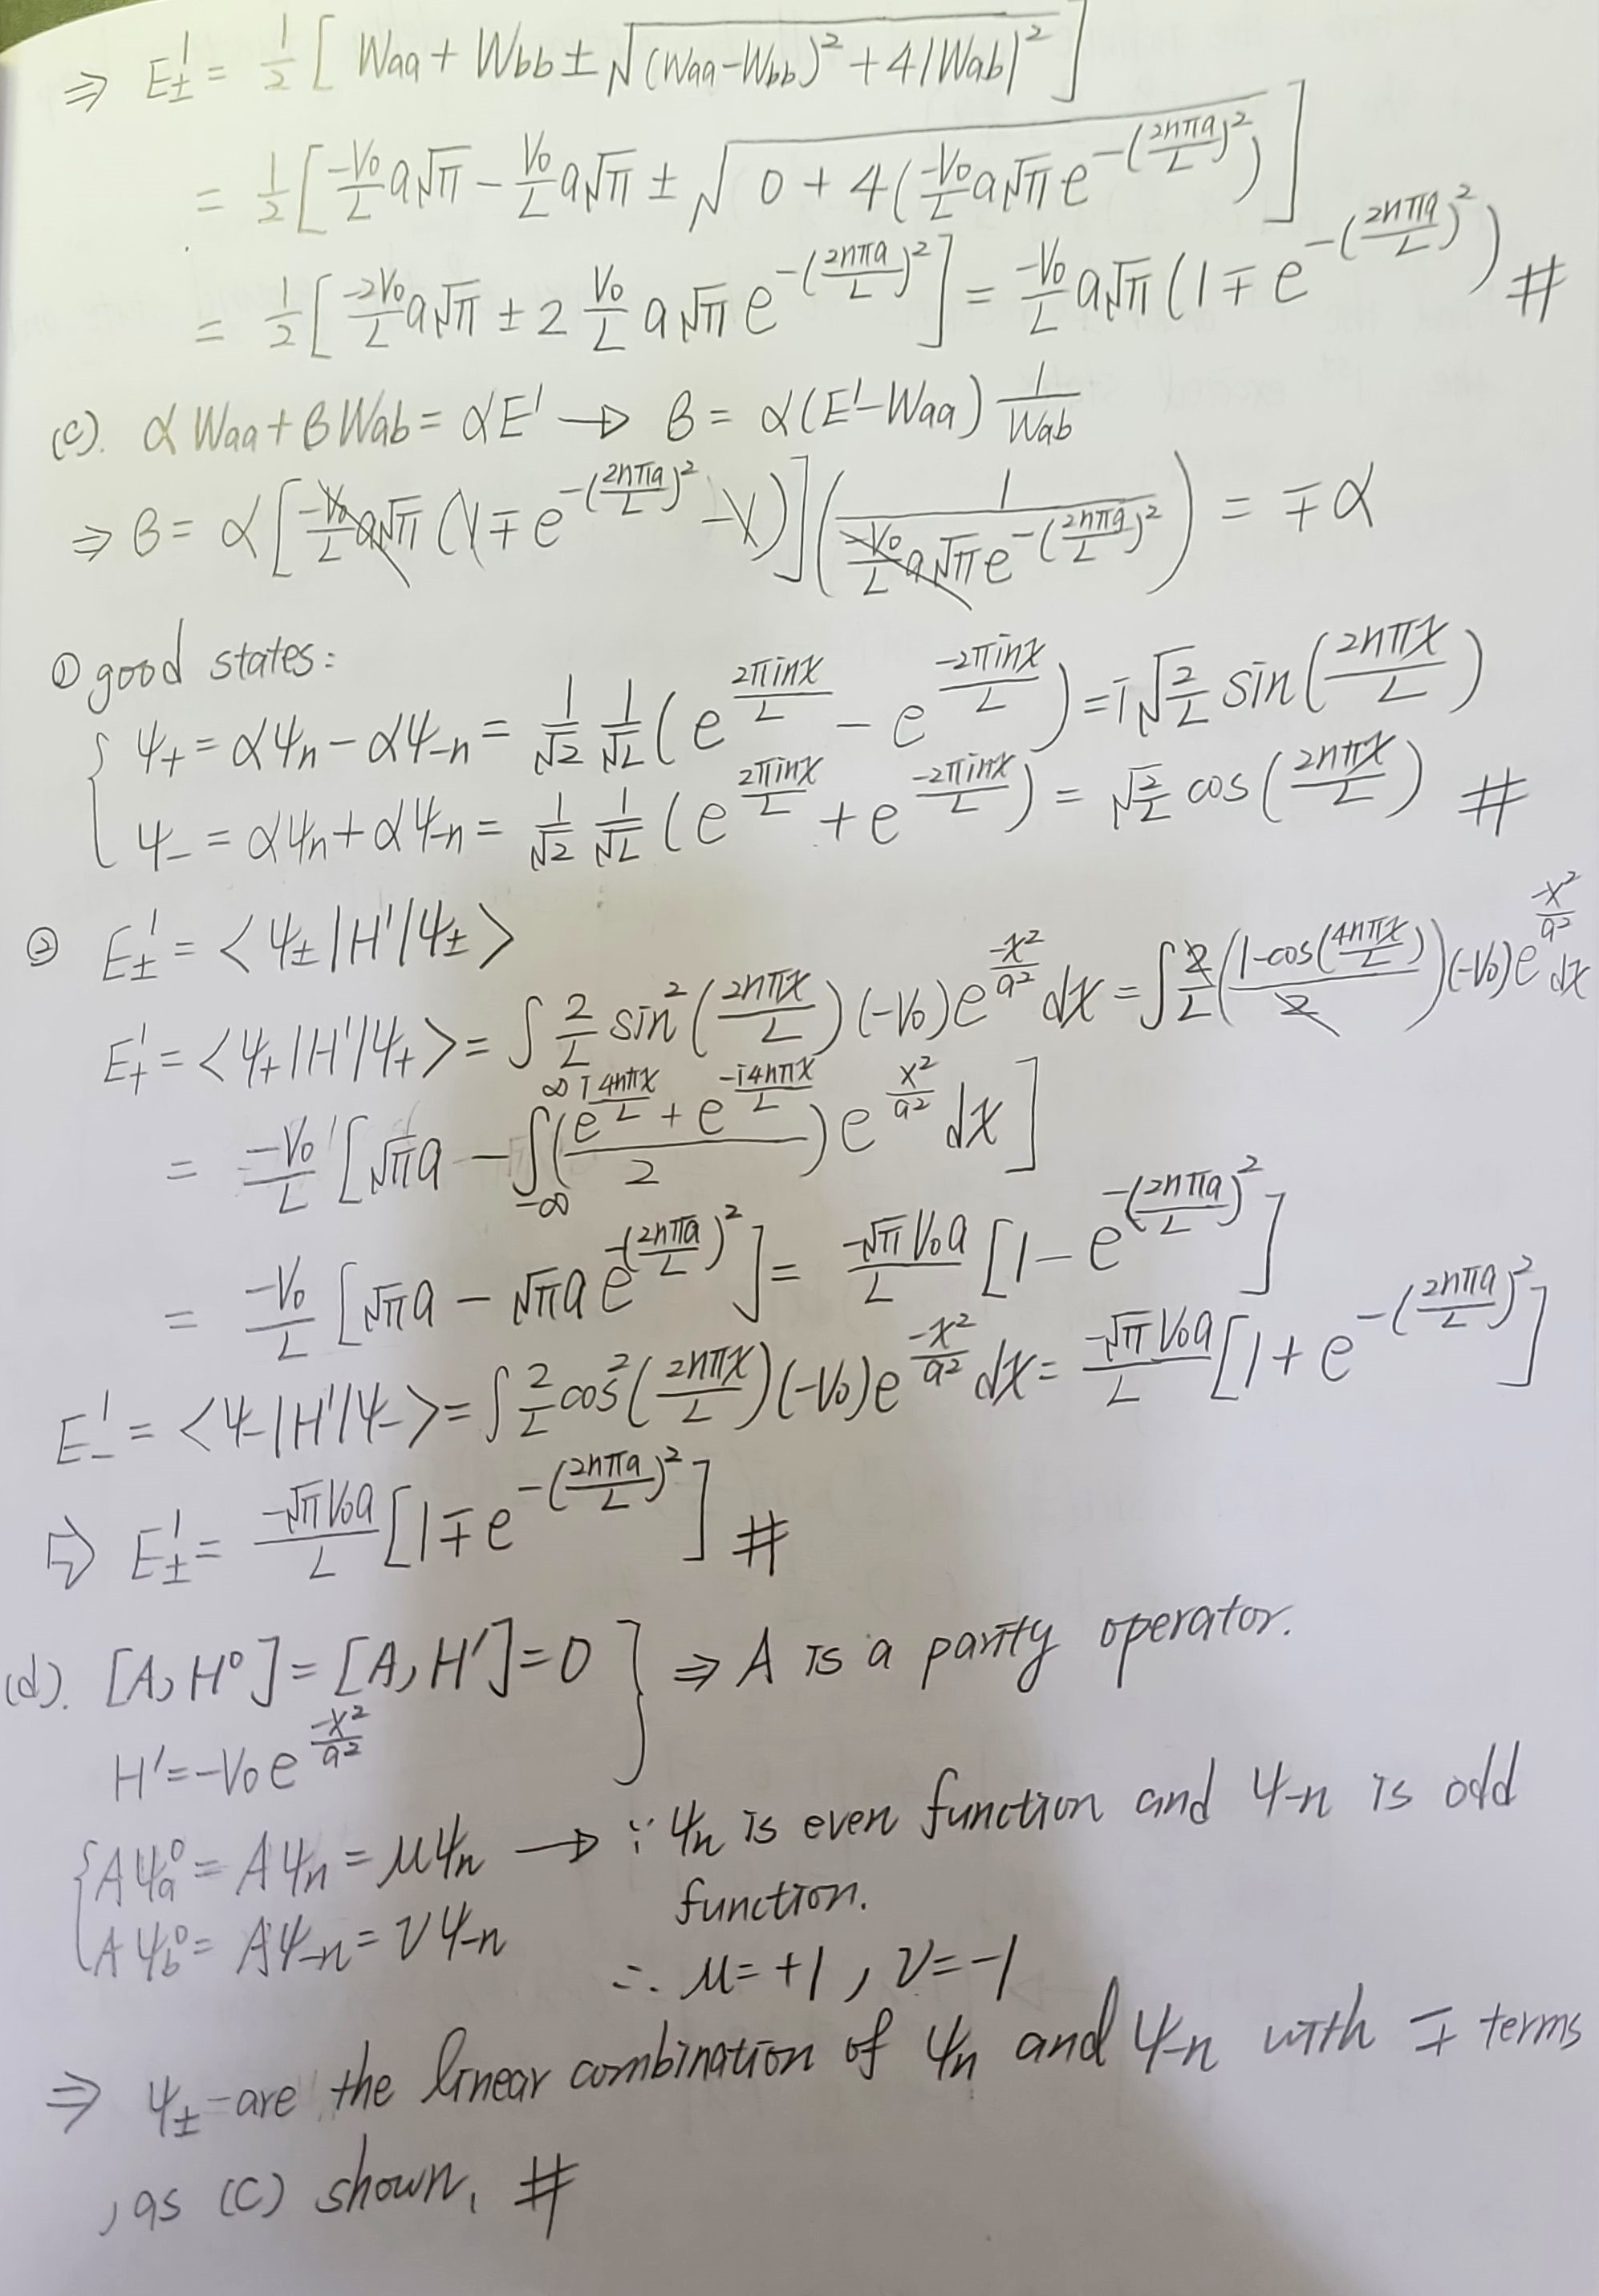 ⇒ E±¹ = 1/2 [ Waa + Wbb ± √((Waa-Wbb)² + 4|Wab|²) ]
= 1/2 [ -V₀/L a√π - V₀/L a√π ± √(0 + 4(-V₀/L a√π e^(-(2nπa/L)²)) ]
= 1/2 [ -2V₀/L a√π ± 2 V₀/L a√π e^(-(2nπa/L)²) ] = -V₀/L a√π (1 ∓ e^(-(2nπa/L)²)) #
(c). αWaa + βWab = αE' → β = α(E'-Waa) 1/Wab
⇒ β = α [ -V₀/L a√π (1 ∓ e^(-(2nπa/L)²) - 1) ] ( 1 / (-V₀/L a√π e^(-(2nπa/L)²)) ) = ∓α
① good states:
{ ψ₊ = αψn - αψ-n = 1/√2 1/√L ( e^(2πinx/L) - e^(-2πinx/L) ) = i√(2/L) sin(2nπx/L)
ψ₋ = αψn + αψ-n = 1/√2 1/√L ( e^(2πinx/L) + e^(-2πinx/L) ) = √(2/L) cos(2nπx/L) #
② E±¹ = <ψ±|H'|ψ±>
E₊¹ = <ψ₊|H'|ψ₊> = ∫ 2/L sin²(2nπx/L) (-V₀) e^(-x²/a²) dx = ∫ 2/L ((1-cos(4nπx/L))/2) (-V₀) e^(-x²/a²) dx
= -V₀/L [ √π a - ∫_{-∞}^{∞} ((e^(i4nπx/L) + e^(-i4nπx/L))/2) e^(x²/a²) dx ]
= -V₀/L [ √π a - √π a e^(-(2nπa/L)²) ] = -√π V₀a/L [ 1 - e^(-(2nπa/L)²) ]
E₋¹ = <ψ₋|H'|ψ₋> = ∫ 2/L cos²(2nπx/L) (-V₀) e^(-x²/a²) dx = -√π V₀a/L [ 1 + e^(-(2nπa/L)²) ]
⇒ E±¹ = -√π V₀a/L [ 1 ∓ e^(-(2nπa/L)²) ] #
(d). [A, H⁰] = [A, H'] = 0 } ⇒ A is a parity operator.
H' = -V₀ e^(-x²/a²)
{ Aψa⁰ = Aψn = μψn → ∵ ψn is even function and ψ-n is odd
function.
Aψb⁰ = Aψ-n = νψ-n
∴ μ = +1, ν = -1
⇒ ψ± are the linear combination of ψn and ψ-n with ∓ terms
, as (c) shown. #